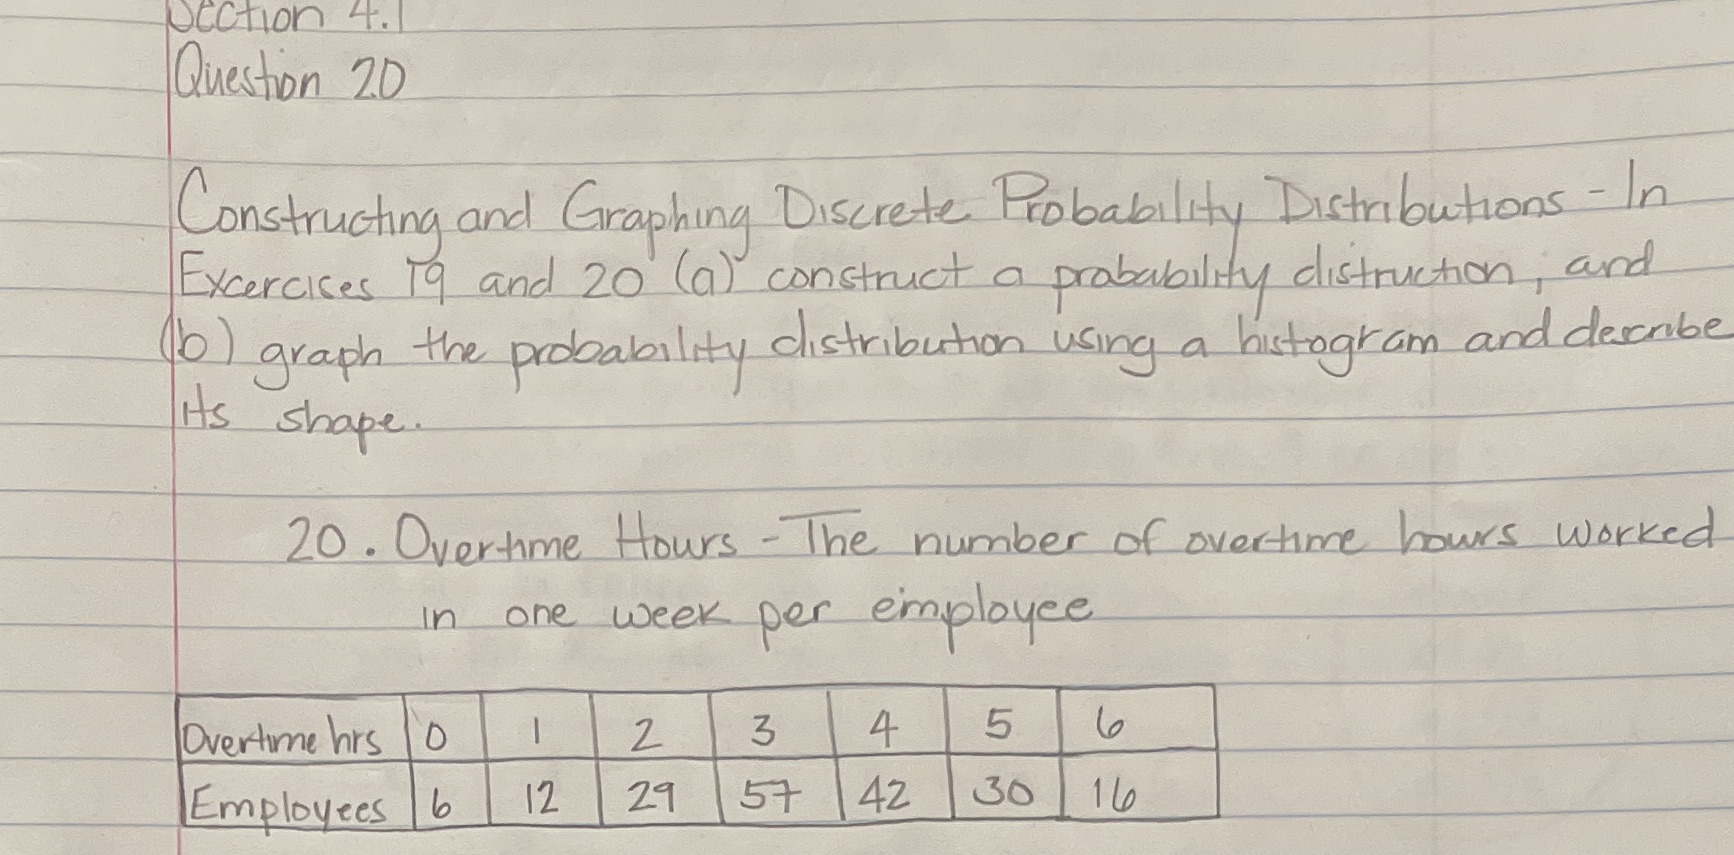 Section 4.1
Question 20
Constructing and Graphing Discrete Probability Distributions - In
Excercises 19 and 20 (a) construct a probability distruction, and
(b) graph the probability distribution using a histogram and describe
its shape.
20. Overtime Hours - The number of overtime hours worked
in one week per employee
Overtime hrs 0 1 2 3 4 5 6
Employees 6 12 29 57 42 30 16